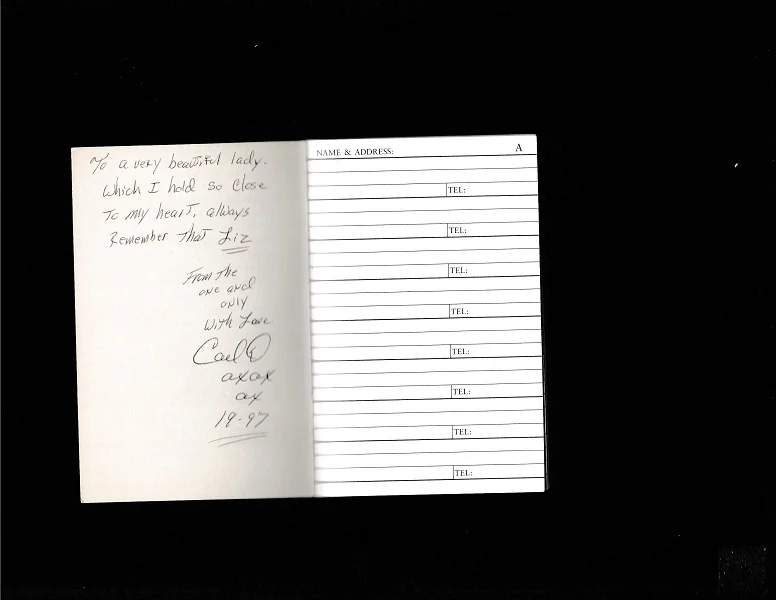 To a very beautiful lady.
Which I hold so Close
To my heart, always
Remember That Liz
From The
one and
only
With Love
Carl O
oxox
ox
19-97
NAME & ADDRESS: A
TEL:
TEL:
TEL:
TEL:
TEL:
TEL:
TEL:
TEL: